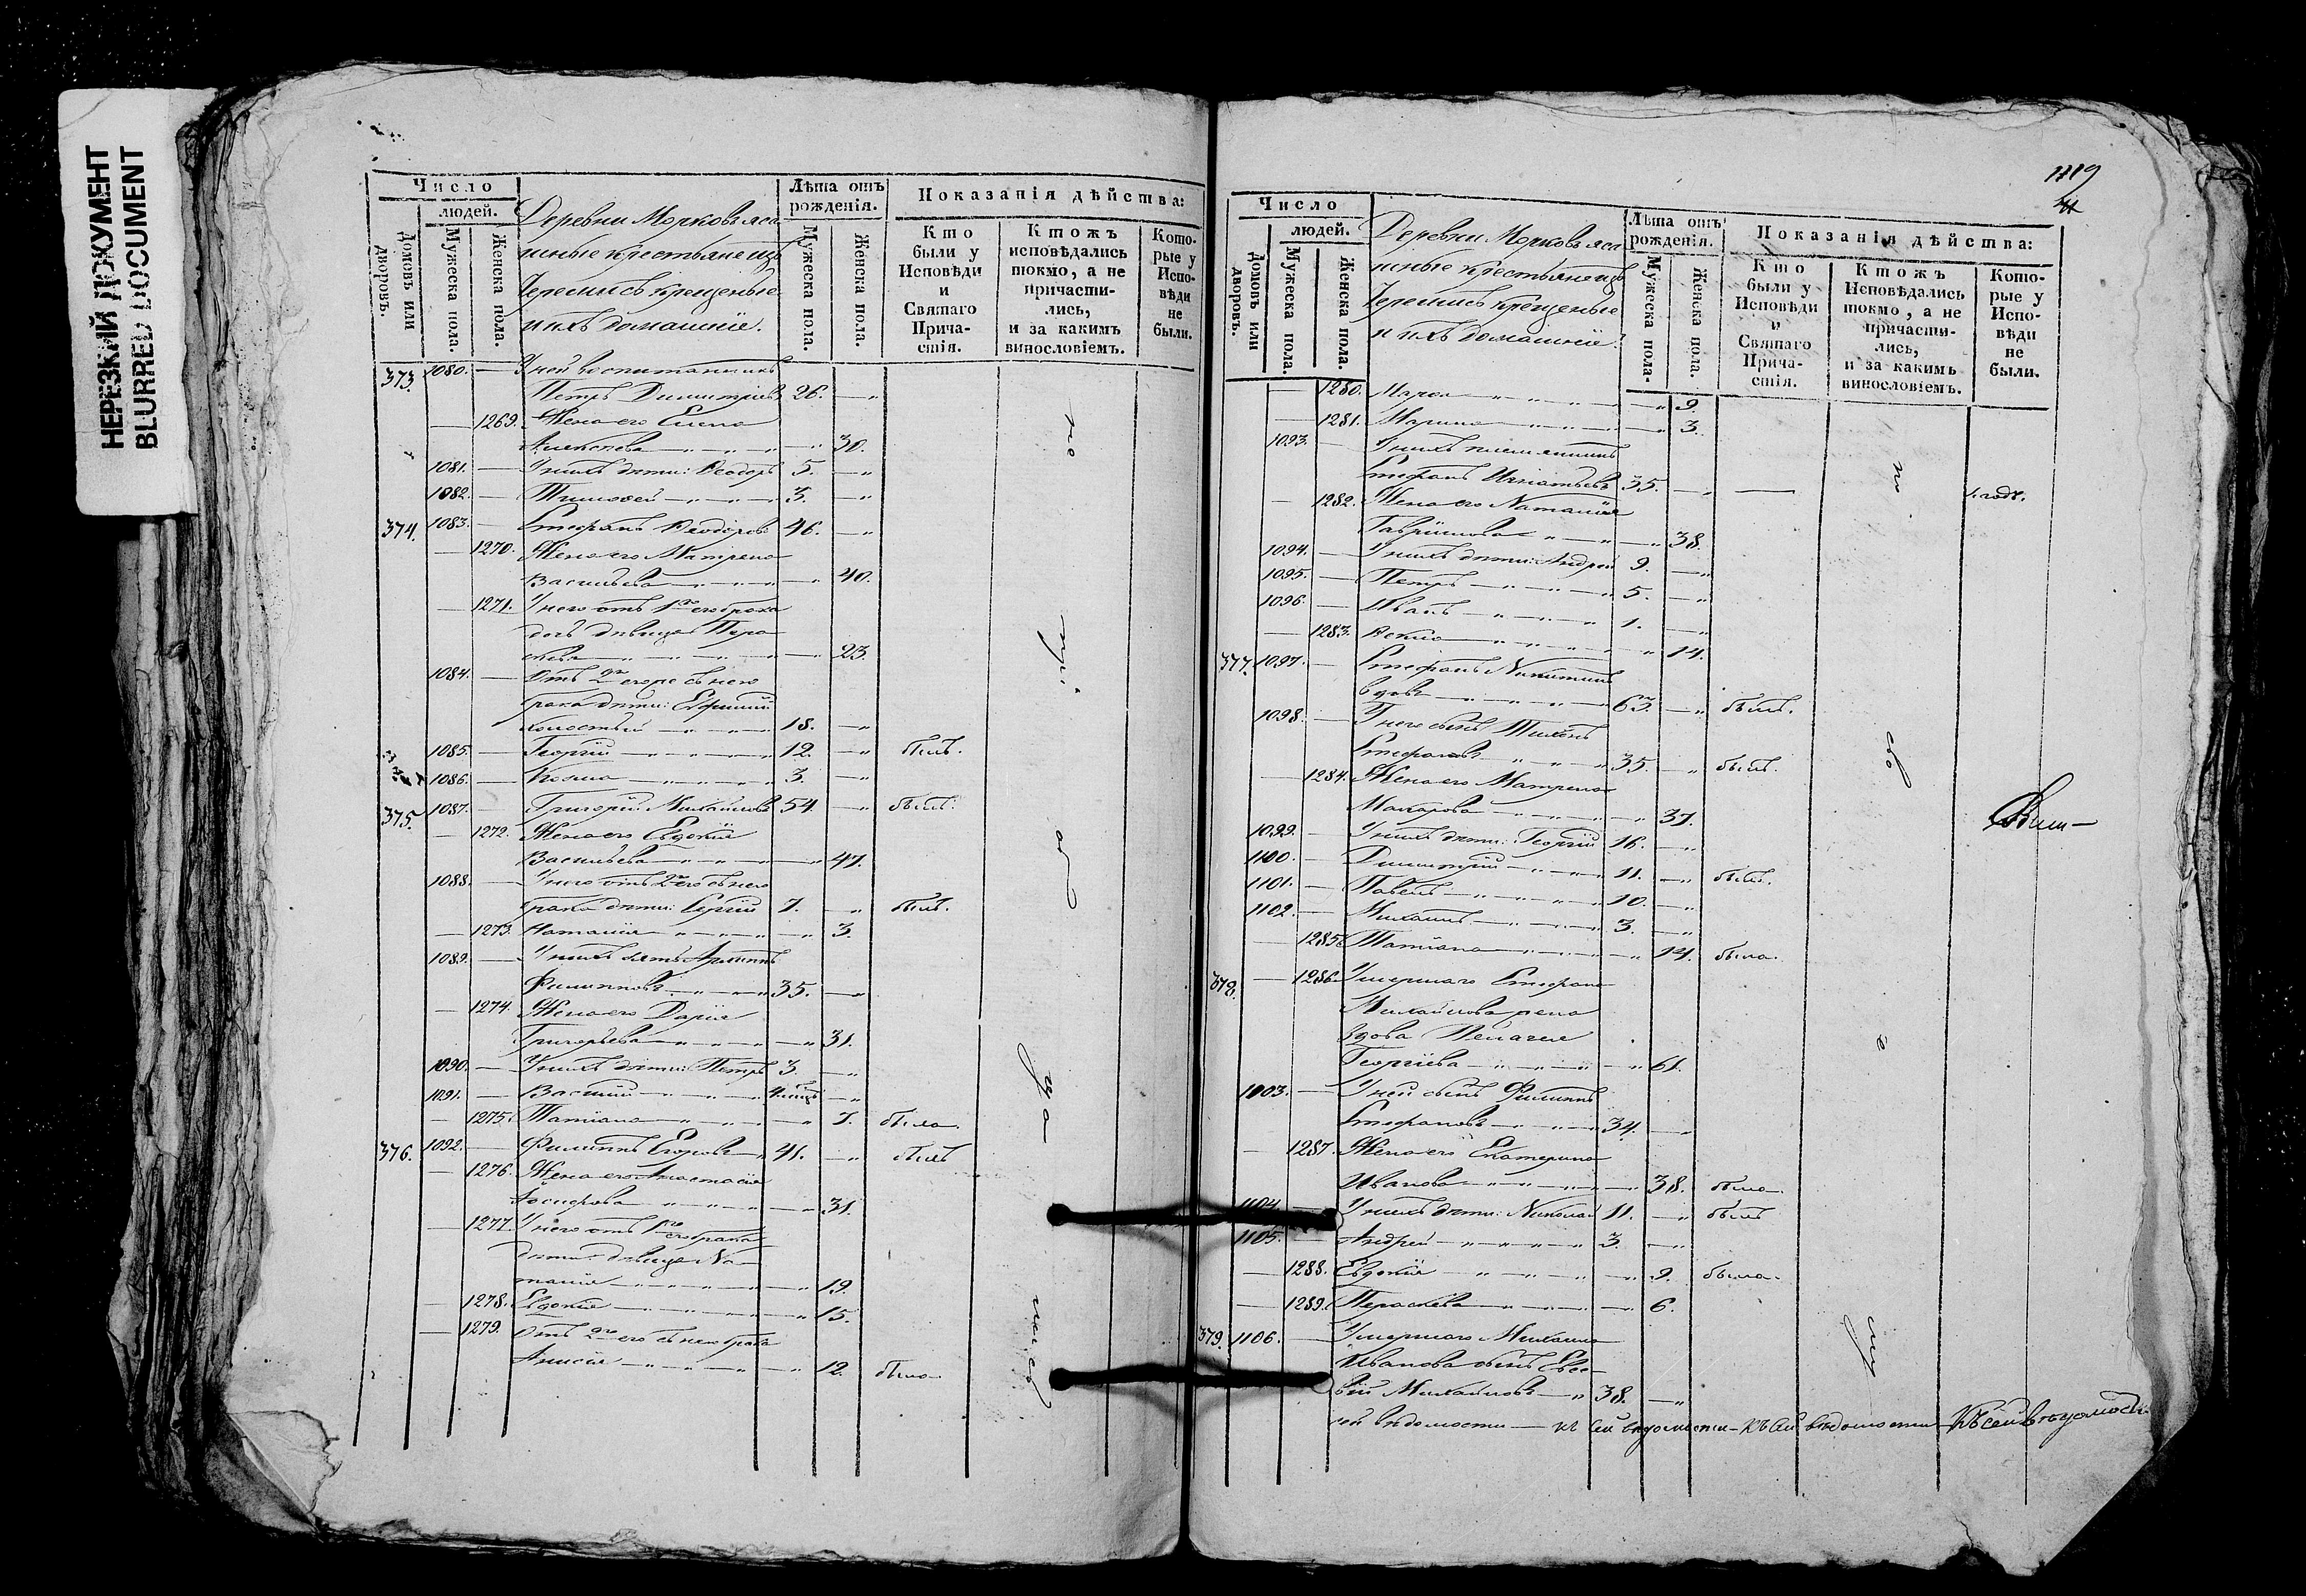 НЕРЕЗКИЙ ДОКУМЕНТ
BLURRED DOCUMENT
Число
людей.
Домовъ или дворовъ.
Мужеска пола.
Женска пола.
Деревни Морковъ яса
шные крестьяне изъ
Черемисъ крещеные
и ихъ домашніе.
Лѣта отъ рожденія.
Мужеска пола.
Женска пола.
Показанія дѣйства:
Кто были у Исповѣди и Святаго Причастія.
Ктожъ исповѣдались токмо, а не причастились, и за какимъ винословіемъ.
Которые у Исповѣди не были.
373. 1080. — У ней воспитанникъ
Петръ Димитріевъ 26. — „
— 1269. Жена его Елена
Алексѣева — „ — „ — „ 30.
1081. — У нихъ дѣти: Ѳеодоръ 5. — „
1082. — Тимоѳей — „ — „ — 3. — „
374. 1083. — Стефанъ Ѳеодоровъ 46. — „
— 1270. Жена его Матрена
Васильева — „ — „ — „ 40.
— 1271. У него отъ 1го его брака
дочь дѣвица Пара
скева — „ — „ — „ — 23.
1084. — Отъ 2го его съ нею
брака дѣти: Ефимій
холостый — „ — „ — 18. — „
1085. — Георгій — „ — „ — 12. — „ былъ.
1086. — Козма — „ — „ — 3. — „
375. 1087. — Григорій Михайловъ 54 — „ былъ.
— 1272. Жена его Евдокія
Васильева — „ — „ — „ 47.
1088. — У него отъ 2го его съ нею
брака дѣти: Сергій 7. — „ былъ.
— 1273. Наталія — „ — „ — „ 3.
1089. — У нихъ зять Архиппъ
Филипповъ — „ — „ 35. — „
— 1274. Жена его Дарія
Григорьева — „ — „ — „ 31.
1090. — У нихъ дѣти: Петръ 3. — „
1091. — Василій — „ — „ 4 мѣсяц. — „
— 1275. Татіана — „ — „ — „ 7. была.
376. 1092. — Филиппъ Егоровъ 41. — „ былъ
— 1276. Жена его Анастасія
— „ — „ — „ 31.
— 1277. У него отъ 1го его брака
дѣти: дѣвица На
талія — „ — „ — „ 19.
— 1278. Евдокія — „ — „ — „ 15.
— 1279. Отъ 2го его съ нею брака
Анисія — „ — „ — „ 12. была
по при ход
1119
Число
людей.
Домовъ или дворовъ.
Мужеска пола.
Женска пола.
Деревни Морковъ яса
шные крестьяне изъ
Черемисъ крещеные
и ихъ домашніе.
Лѣта отъ рожденія.
Мужеска пола.
Женска пола.
Показанія дѣйства:
Кто были у Исповѣди и Святаго Причастія.
Ктожъ Исповѣдались токмо, а не причастились, и за какимъ винословіемъ.
Которые у Исповѣди не были.
— 1280. Марѳа — „ — „ — „ 9.
— 1281. Марина — „ — „ — „ 3.
1093. — У нихъ племянникъ
Стефанъ Игнатьевъ 35. — „ —
— 1282. Жена его Наталія
Гавриилова — „ — „ — „ 38.
1094. — У нихъ дѣти: Андрей 9. — „
1095. — Петръ — „ — „ — 5. — „
1096. — Иванъ — „ — „ — 1. — „
— 1283. Ѳекла — „ — „ — „ 14.
377. 1097. — Стефанъ Никитинъ
вдовъ — „ — „ — 63. — „ былъ.
1098. — У него сынъ Тихонъ
Стефановъ — „ — „ 35. — „ былъ.
— 1284. Жена его Матрена
Макарова — „ — „ — „ 37.
1099. — У нихъ дѣти: Георгій 16. — „
1100. — Димитрій — „ — „ 11. — „ былъ.
1101. — Павелъ — „ — „ 10. — „
1102. — Михаилъ — „ — „ 3. — „
— 1285. Татіана — „ — „ — „ 14. была.
378. — 1286. Умершаго Стефана
Михайлова жена
вдова Пелагея
Георгіева — „ — „ — „ 61.
1103. — У ней сынъ Филиппъ
Стефановъ — „ — „ 34. — „
— 1287. Жена его Екатерина
Иванова — „ — „ — „ 38. была.
1104. — У нихъ дѣти: Николай 11. — „ былъ
1105. — Андрей — „ — „ 3. — „
— 1288. Евдокія — „ — „ — „ 9. была.
— 1289. Параскева — „ — „ — 6.
379. 1106. — Умершаго Михаила
Иванова сынъ Евсе
вій Михайловъ — „ 38. — „
сей вѣдомости — къ сей вѣдомости — къ сей вѣдомости — Къ сей вѣдомости